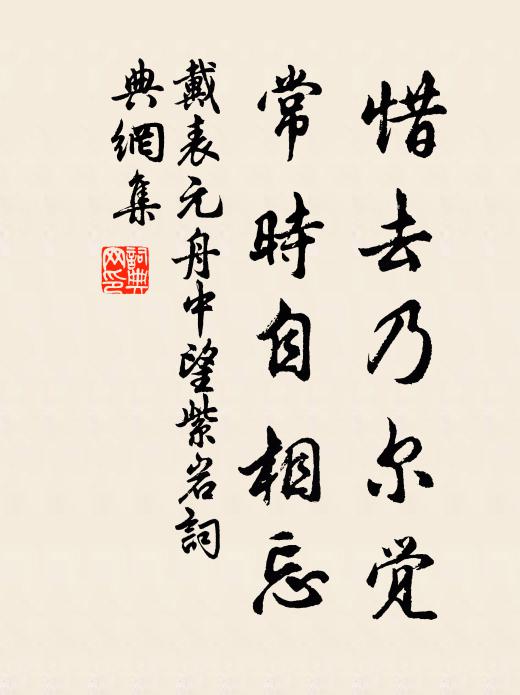 惜去乃尔觉
常時自相忘
戴表元舟中望紫岩詞
典網集
詞典网印